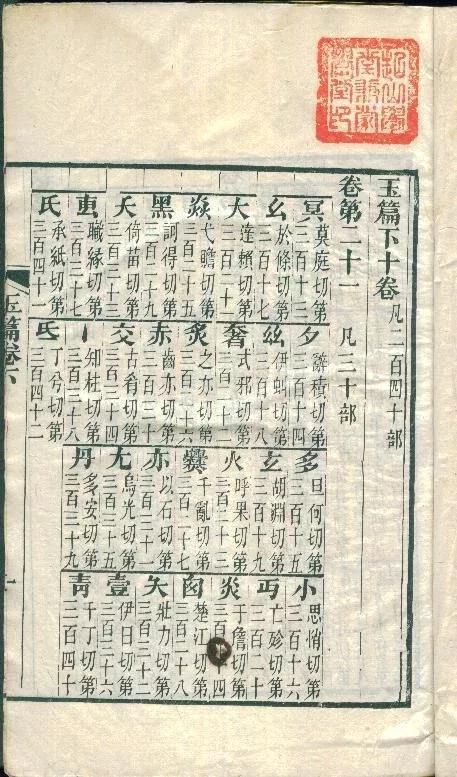 玉篇下十卷 凡二百四十部
卷第二十一 凡三十部
冥 莫庭切第三百一十三 夕 辭積切第三百一十四 多 旦何切第三百一十五 小 思悄切第三百一十六
幺 於條切第三百一十七 𢆶 伊虯切第三百一十八 玄 胡淵切第三百一十九 丏 亡殄切第三百二十
大 達賴切第三百二十一 奢 式邪切第三百二十二 火 呼果切第三百二十三 炎 于詹切第三百二十四
焱 弋贍切第三百二十五 炙 之亦切第三百二十六 爨 千亂切第三百二十七 囱 楚江切第三百二十八
黑 訶得切第三百二十九 赤 齒亦切第三百三十 亦 以石切第三百三十一 夨 壯力切第三百三十二
夭 倚苗切第三百三十三 交 古肴切第三百三十四 尢 烏光切第三百三十五 壹 伊日切第三百三十六
叀 職緣切第三百三十七 丨 知杜切第三百三十八 丹 多安切第三百三十九 青 千丁切第三百四十
氏 承紙切第三百四十一 氐 丁兮切第三百四十二
玉篇卷六